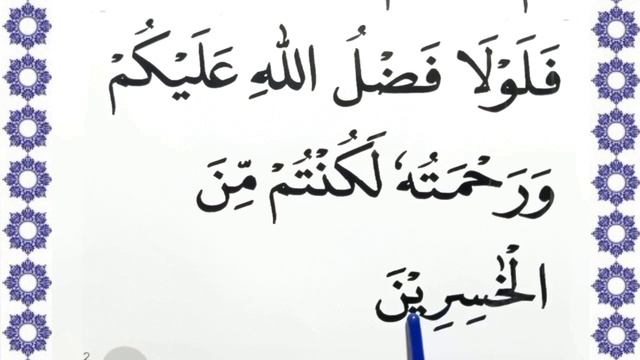 فَلَوْلَا فَضْلُ اللهِ عَلَيْكُمْ
وَرَحْمَتُهٗ لَكُنْتُمْ مِّنَ
الْخٰسِرِيْنَ
2